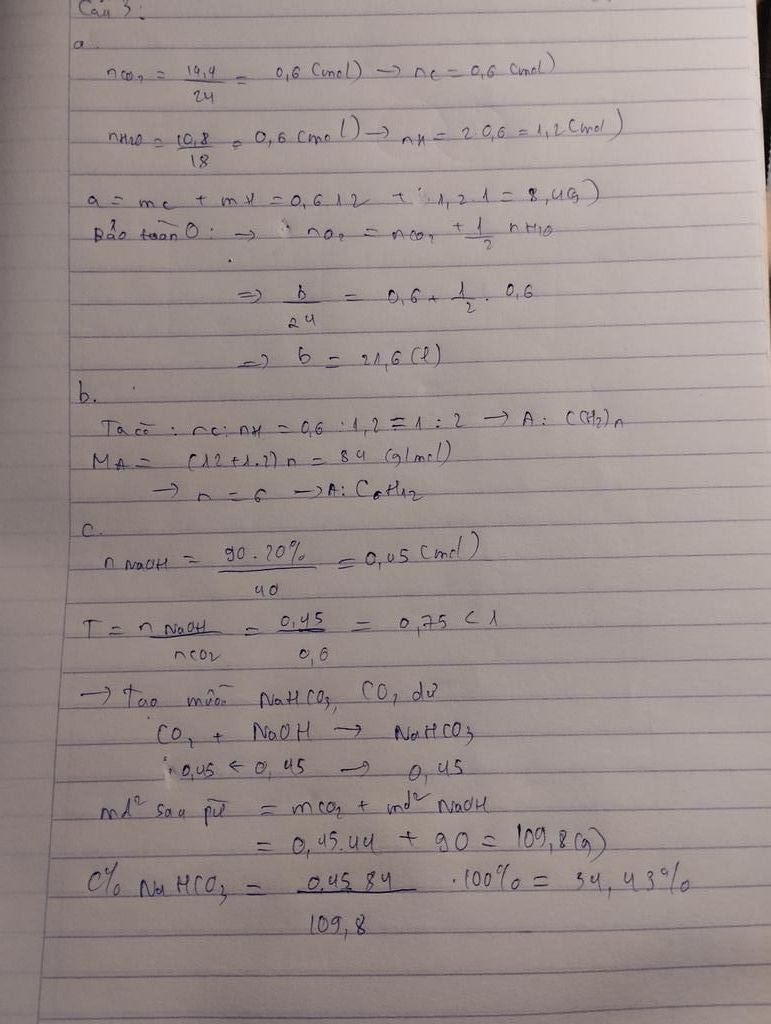 Câu 3:
a.
nCO₂ = 14,4/24 = 0,6 (mol) → nC = 0,6 (mol)
nH₂O = 10,8/18 = 0,6 (mol) → nH = 2.0,6 = 1,2 (mol)
a = mC + mH = 0,6.12 + 1,2.1 = 8,4(g)
Bảo toàn O: → nO₂ = nCO₂ + 1/2 nH₂O
=> b/24 = 0,6 + 1/2 . 0,6
=> b = 21,6 (l)
b.
Ta có: nC: nH = 0,6 : 1,2 = 1 : 2 → A: (CH₂)n
MA = (12+1.2)n = 84 (g/mol)
→ n = 6 → A: C₆H₁₂
c.
n NaOH = 90.20%/40 = 0,45 (mol)
T = nNaOH/nCO2 = 0,45/0,6 = 0,75 < 1
→ Tạo muối NaHCO₃, CO₂ dư
CO₂ + NaOH → NaHCO₃
0,45 ← 0,45 → 0,45
md² sau pứ = mCO₂ + md² NaOH
= 0,45.44 + 90 = 109,8(g)
C% NaHCO₃ = 0,45.84/109,8 .100% = 34,43%